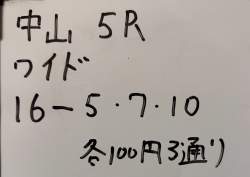 中山 5R
ワイド
16－5・7・10
各100円3通り